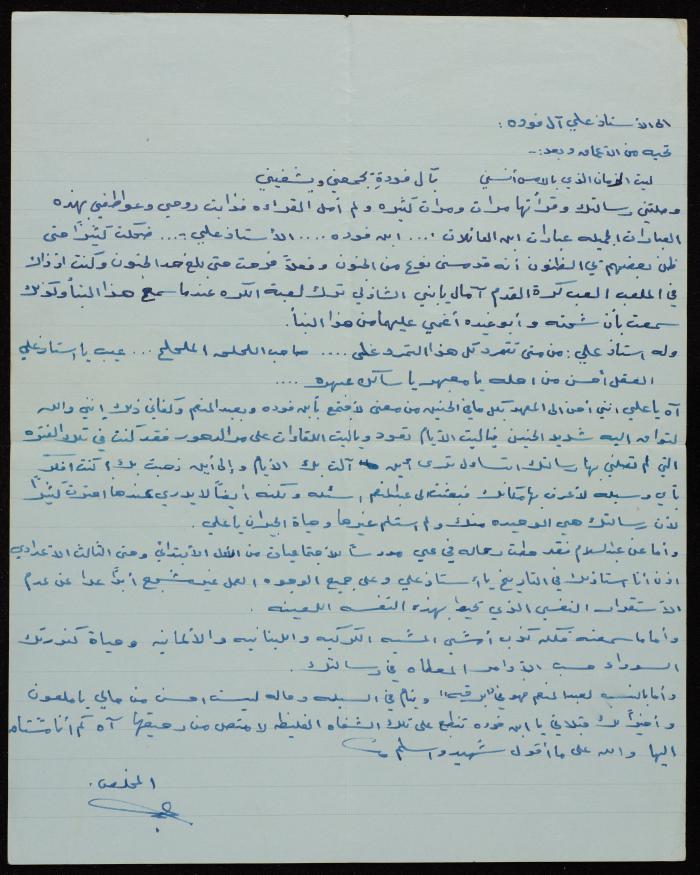 الى الأستاذ علي آل فوده :
تحيه من الأعماق وبعد :-
ليت الزمان الذي بالأمس أنسني بآل فودةٍ يجمعني ويشفيني
وصلتني رسالتك وقرأتها مرات ومرات كثيره ولم أمل القراءه فذابت روحي وعواطفي بهذه
العبارات الجميله عبارات ابن العائلات ... ابن فوده .... الأستاذ علي ... ضحكت كثيراً حتى
ظن بعضهم بي الظنون أنه قد مسني نوع من الجنون وفعلاً فرحت حتى بلغ حد الجنون وكنت اذ ذاك
في الملعب العب كرة القدم آمال يا بني الشاذلي ترك لعبة الكره عندما سمع هذا النبأ وكذلك
سمعت بأن شحته وأبو عيده أغمي عليهما من هذا النبأ.
وله استاذ علي : من متى تتمرد كل هذا التمرد علي .... صاحب اللحلحه الملحلح ... عيب يا استاذ علي
العقل أحسن من اجله يا معبهر يا سآكن عبهره ....
آه يا علي انني أحن الى المعهد بكل ما في الحنين من معنى لأجتمع بأبن فوده وبعبد المنعم وكفاني ذلك إنني والله
لتواق اليه شديد الحنين فياليت الأيام تعود وياليت اللقاءات على مر الدهور فقد كنت في تلك الفتره
التي لم تصلني بها رسالتك اتساءل ترى أين آلت بك الأيام وإلى أين ذهبت بك ؟ كنت افكر
بأي وسيله لأعرف بها مكانك فبعثت الى عبد المنعم اسئله ولكنه أيضاً لا يدري عندها احترت كثيراً
لأن رسالتك هي الوحيده منك ولم استلم غيرها وحياة الجيران يا علي .
وأما عن عبد السلام فقد حطت رحاله في عبي مدرساً للأجتماعيات من الاول الأبتدائي وحتى الثالث الأعدادي
اذن أنا استاذك في التاريخ يا استاذ علي وعلى جميع الوجوه العمل غير مشجع أبداً عدا عن عدم
الأستقرار النفسي الذي يحيط بهذه النفسه اللعينه .
وأما ما سمعته فكله كذب أمشي المشيه الكوكيه واللبنانيه والألمانيه وحياة كندرتك
السوداء حسب الأوامر المعطاه في رسالتك .
وأما بالنسبه لعبد المنعم فهو في "برقه" وينام في السيله وحاله ليست احسن من حالي يا ملعون
وأخيراً لك قبلاتي يا ابن فوده تنطبع على تلك الشفاه الغليظه لأمتص من رحيقها آه كم أنا مشتاق
اليها والله على ما أقول شهيد واسلم
المخلص .